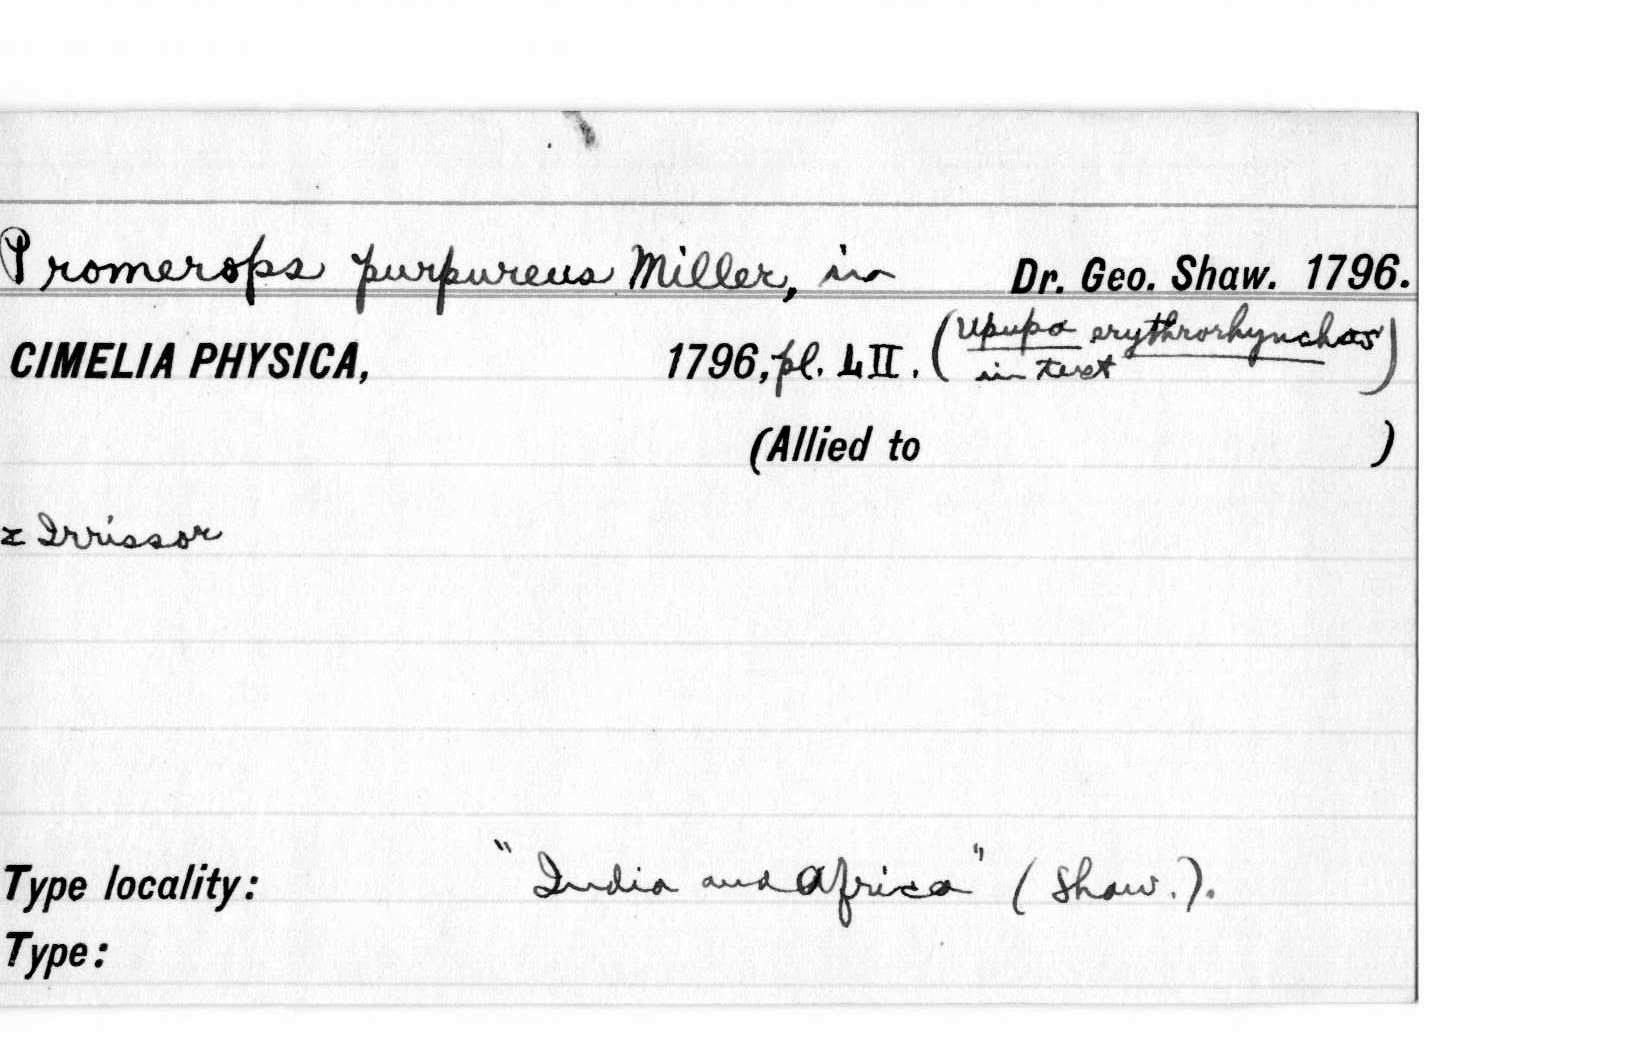 Promerops purpureus Miller, in Dr. Geo. Shaw. 1796.
CIMELIA PHYSICA, 1796, pl. LII. (Upupa erythrorhynchos
in text)
(Allied to )
= Irrissor
Type locality: "India and Africa" (Shaw.).
Type: